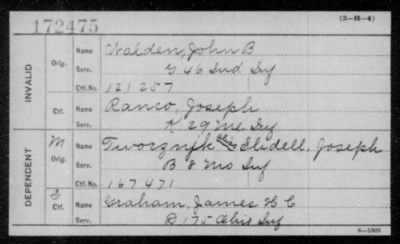 172475
(3-H-4)
INVALID
Orig.
Name Walden, John B
Serv. G 46 Ind Inf
Ctf. No. 121257
Ctf.
Name Ranco, Joseph
Serv. K 29 Me Inf
DEPENDENT
M
Orig.
Name Tworznjk alias Slidell, Joseph
Serv. B 8 Mo Inf
Ctf. No. 167471
Ctf.
Name Graham, James H C
Serv. D 175 Ohio Inf
6-1301